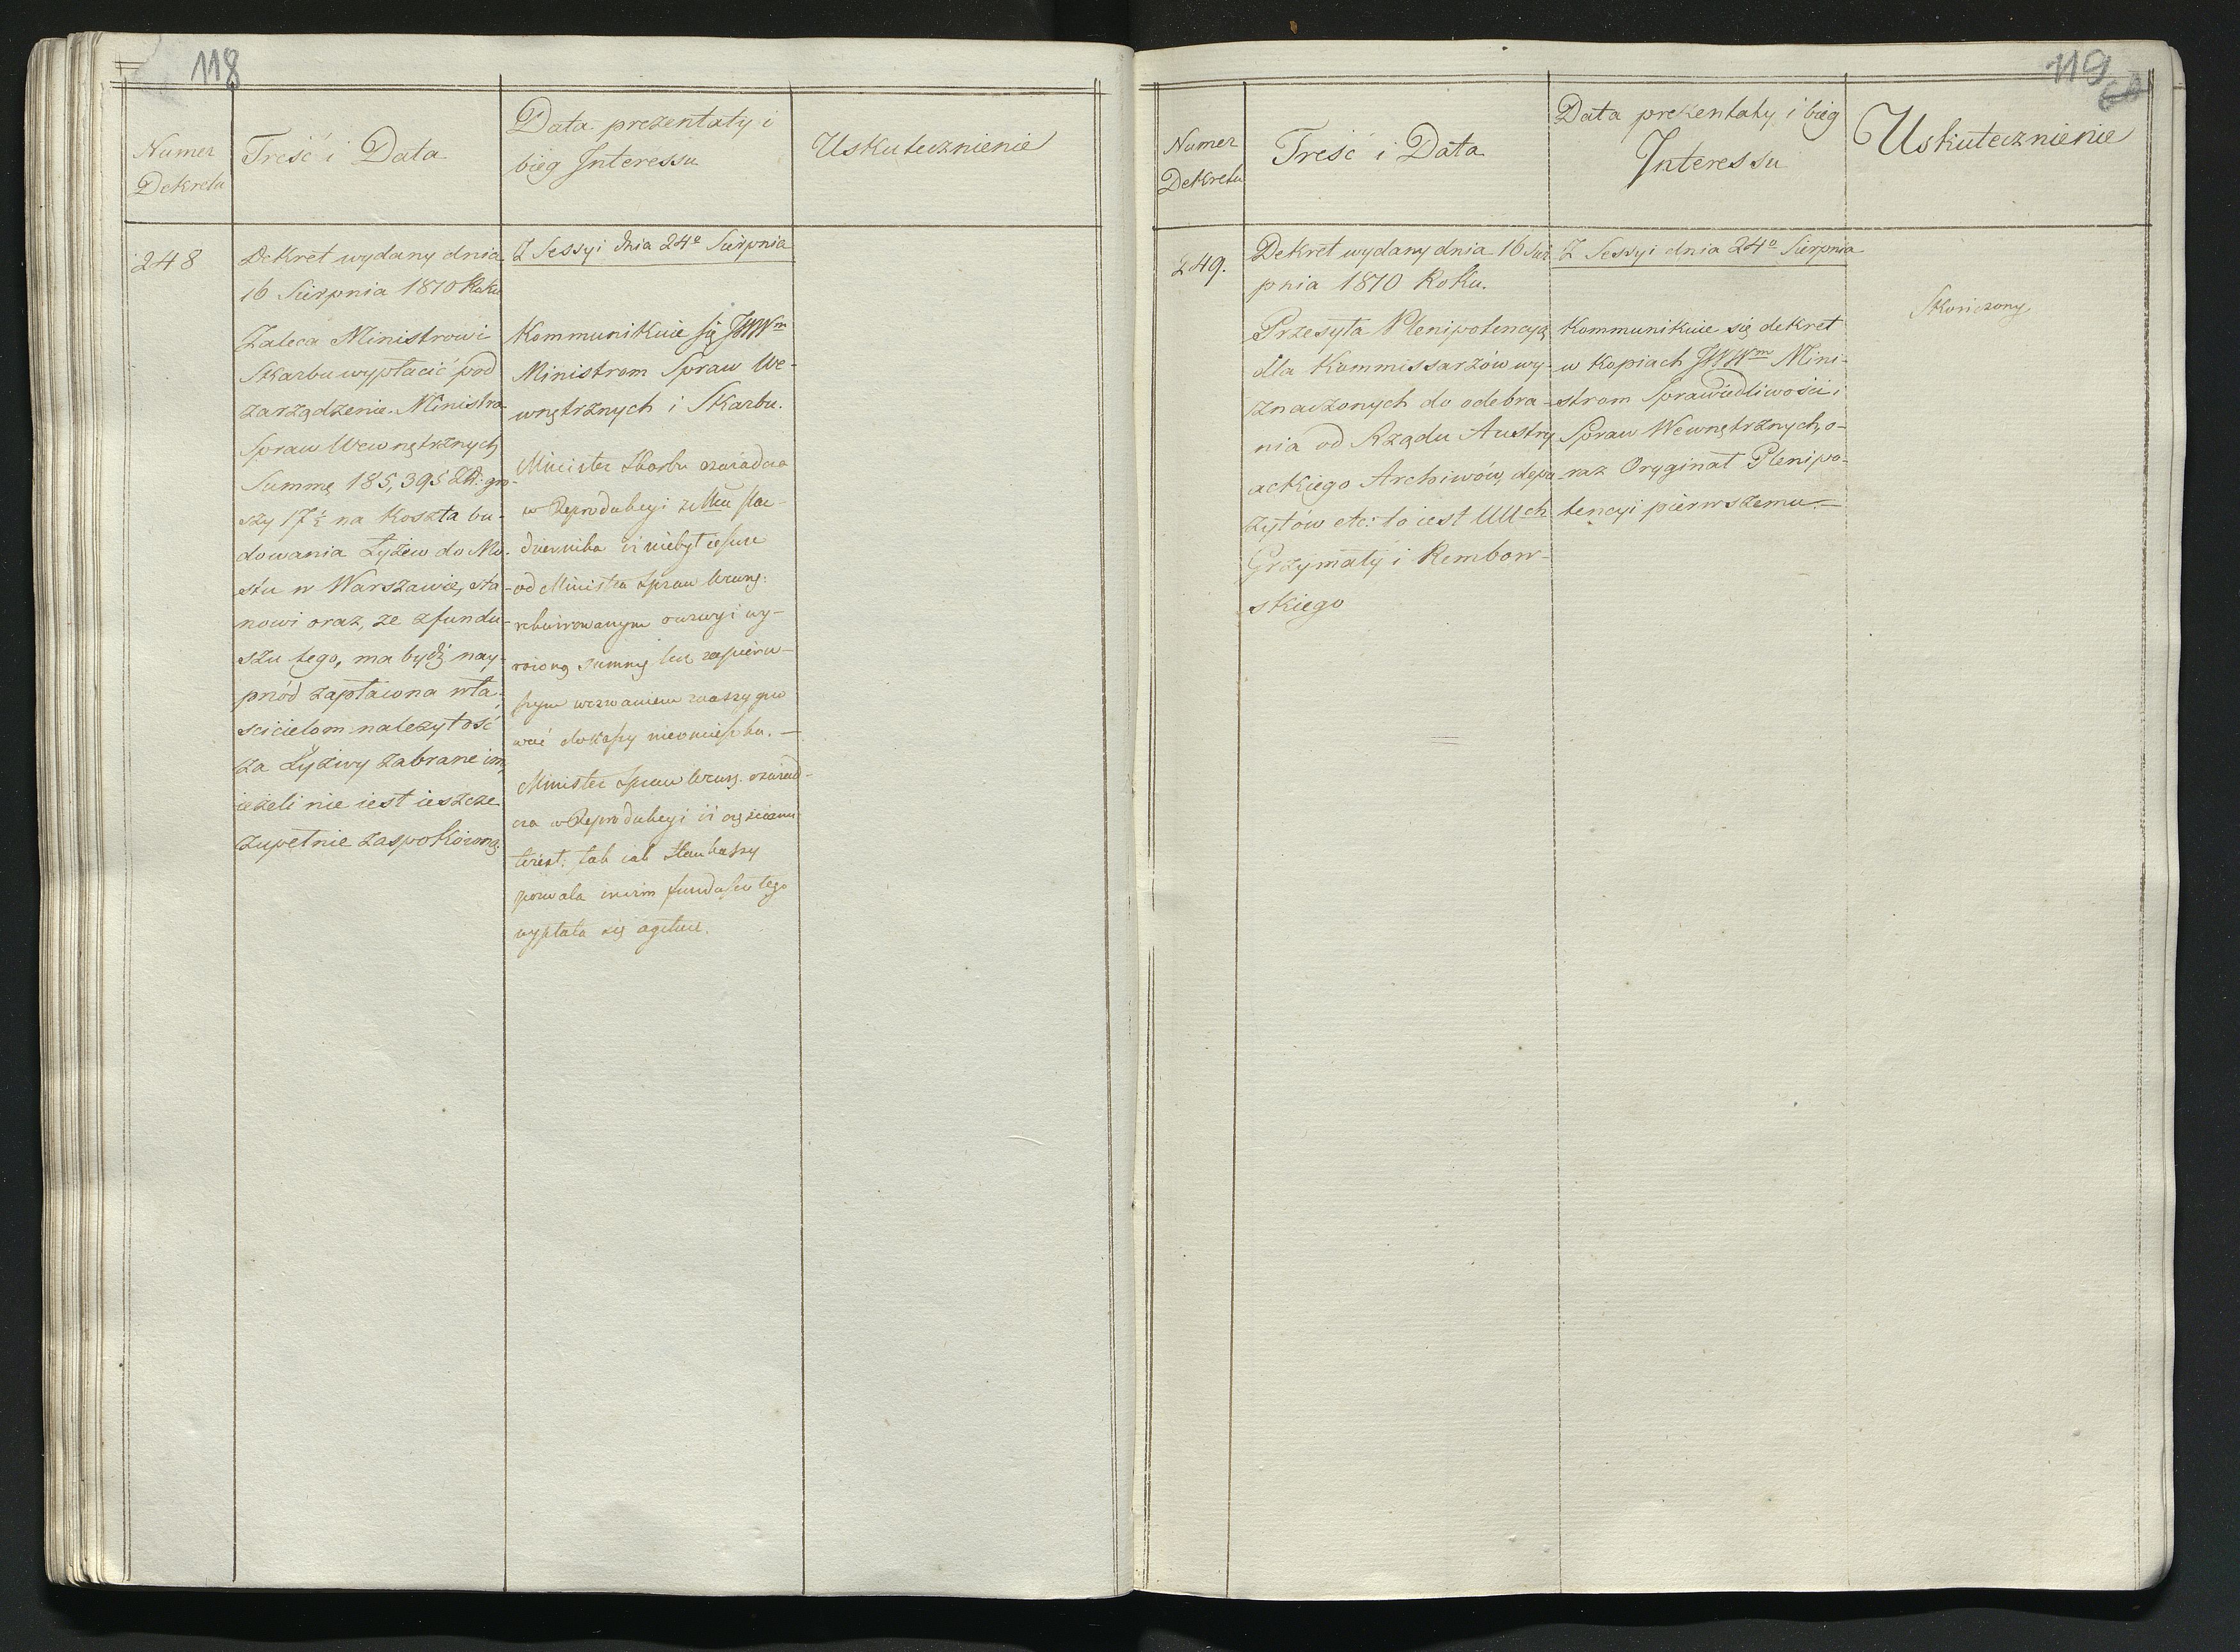 118
Numer
Dekretu
Treść i Data
Data prezentaty i
bieg Interessu
Uskutecznienie
248
Dekret wydany dnia
16 Sierpnia 1810 Roku
Zaleca Ministrowi
Skarbu wypłacić pod
zarządzenie Ministra
Spraw Wewnętrznych
Summę 185,395 Zł: gro-
szy 17½ na Koszta bu-
dowania Łyżew do Mo-
stu w Warszawie, sta-
nowi oraz, że z fundu-
szu tego, ma bydź nay-
przód zapłacona wła-
scicielom należytość
za Łyżwy zabrane im,
ieżeli nie iest ieszcze
zupełnie zaspokoioną.
Z Sessyi dnia 24º Sierpnia
Kommunikuie się JWWm
Ministrom Spraw We-
wnętrznych i Skarbu.
Minister Skarbu oswiadcza
w Reprodukcyi
dziennika iż niebył ieszcze
od Ministra Spraw Wewnę:
rekwirowanym o wyżey wy-
rażoną summę lecz za pierw-
szym wezwaniem zaassygno
wać do kassy nieomieszka. —
Minister Spraw Wewnę. oswiad-
cza w Reprodukcyi iż
iest: tak iak Stan kassy
pozwala funduszu tego
wypłata się
119
60
Numer
Dekretu
Treść i Data
Data prezentaty i bieg
Interessu
Uskutecznienie
249.
Dekret wydany dnia 16 Sier
pnia 1810 Roku.
Przesyła Plenipotencyą
dla Kommissarzów wy-
znaczonych do odebra-
nia od Rządu Austry
ackiego Archiwów, depo
zytów etc: to iest UUch
Grzymały i Rembow-
skiego
Z Sessyi dnia 24º Sierpnia
Kommunikuie się dekret
w kopiach JWWm Mini-
strom Sprawiedliwości i
Spraw Wewnętrznych, o-
raz Oryginał Plenipo-
tencyi pierwszemu. —
Skończony